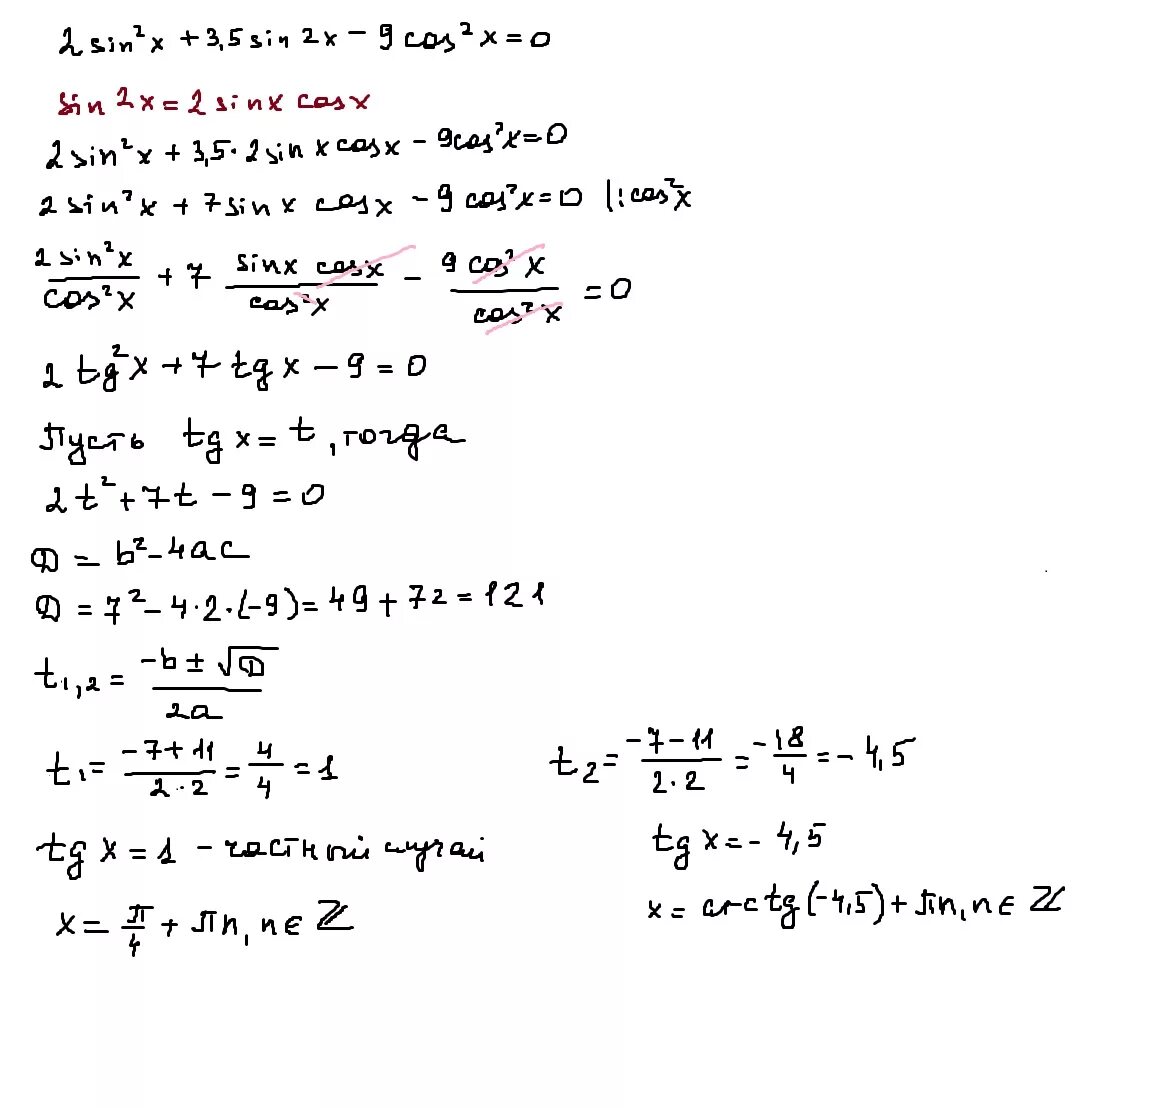 2 sin²x + 3,5 sin 2x − 9 cos²x = 0
sin 2x = 2 sin x cos x
2 sin²x + 3,5 · 2 sin x cos x − 9 cos²x = 0
2 sin²x + 7 sin x cos x − 9 cos²x = 0 |: cos²x
2 sin²x / cos²x + 7 sin x cos x / cos²x − 9 cos²x / cos²x = 0
2 tg²x + 7 tg x − 9 = 0
Пусть tg x = t, тогда
2t² + 7t − 9 = 0
D = b² − 4ac
D = 7² − 4 · 2 · (−9) = 49 + 72 = 121
t₁,₂ = (−b ± √D) / 2a
t₁ = (−7 + 11) / (2 · 2) = 4/4 = 1
t₂ = (−7 − 11) / (2 · 2) = −18/4 = −4,5
tg x = 1 − частный случай
tg x = −4,5
x = π/4 + πn, n ∈ ℤ
x = arctg(−4,5) + πn, n ∈ ℤ